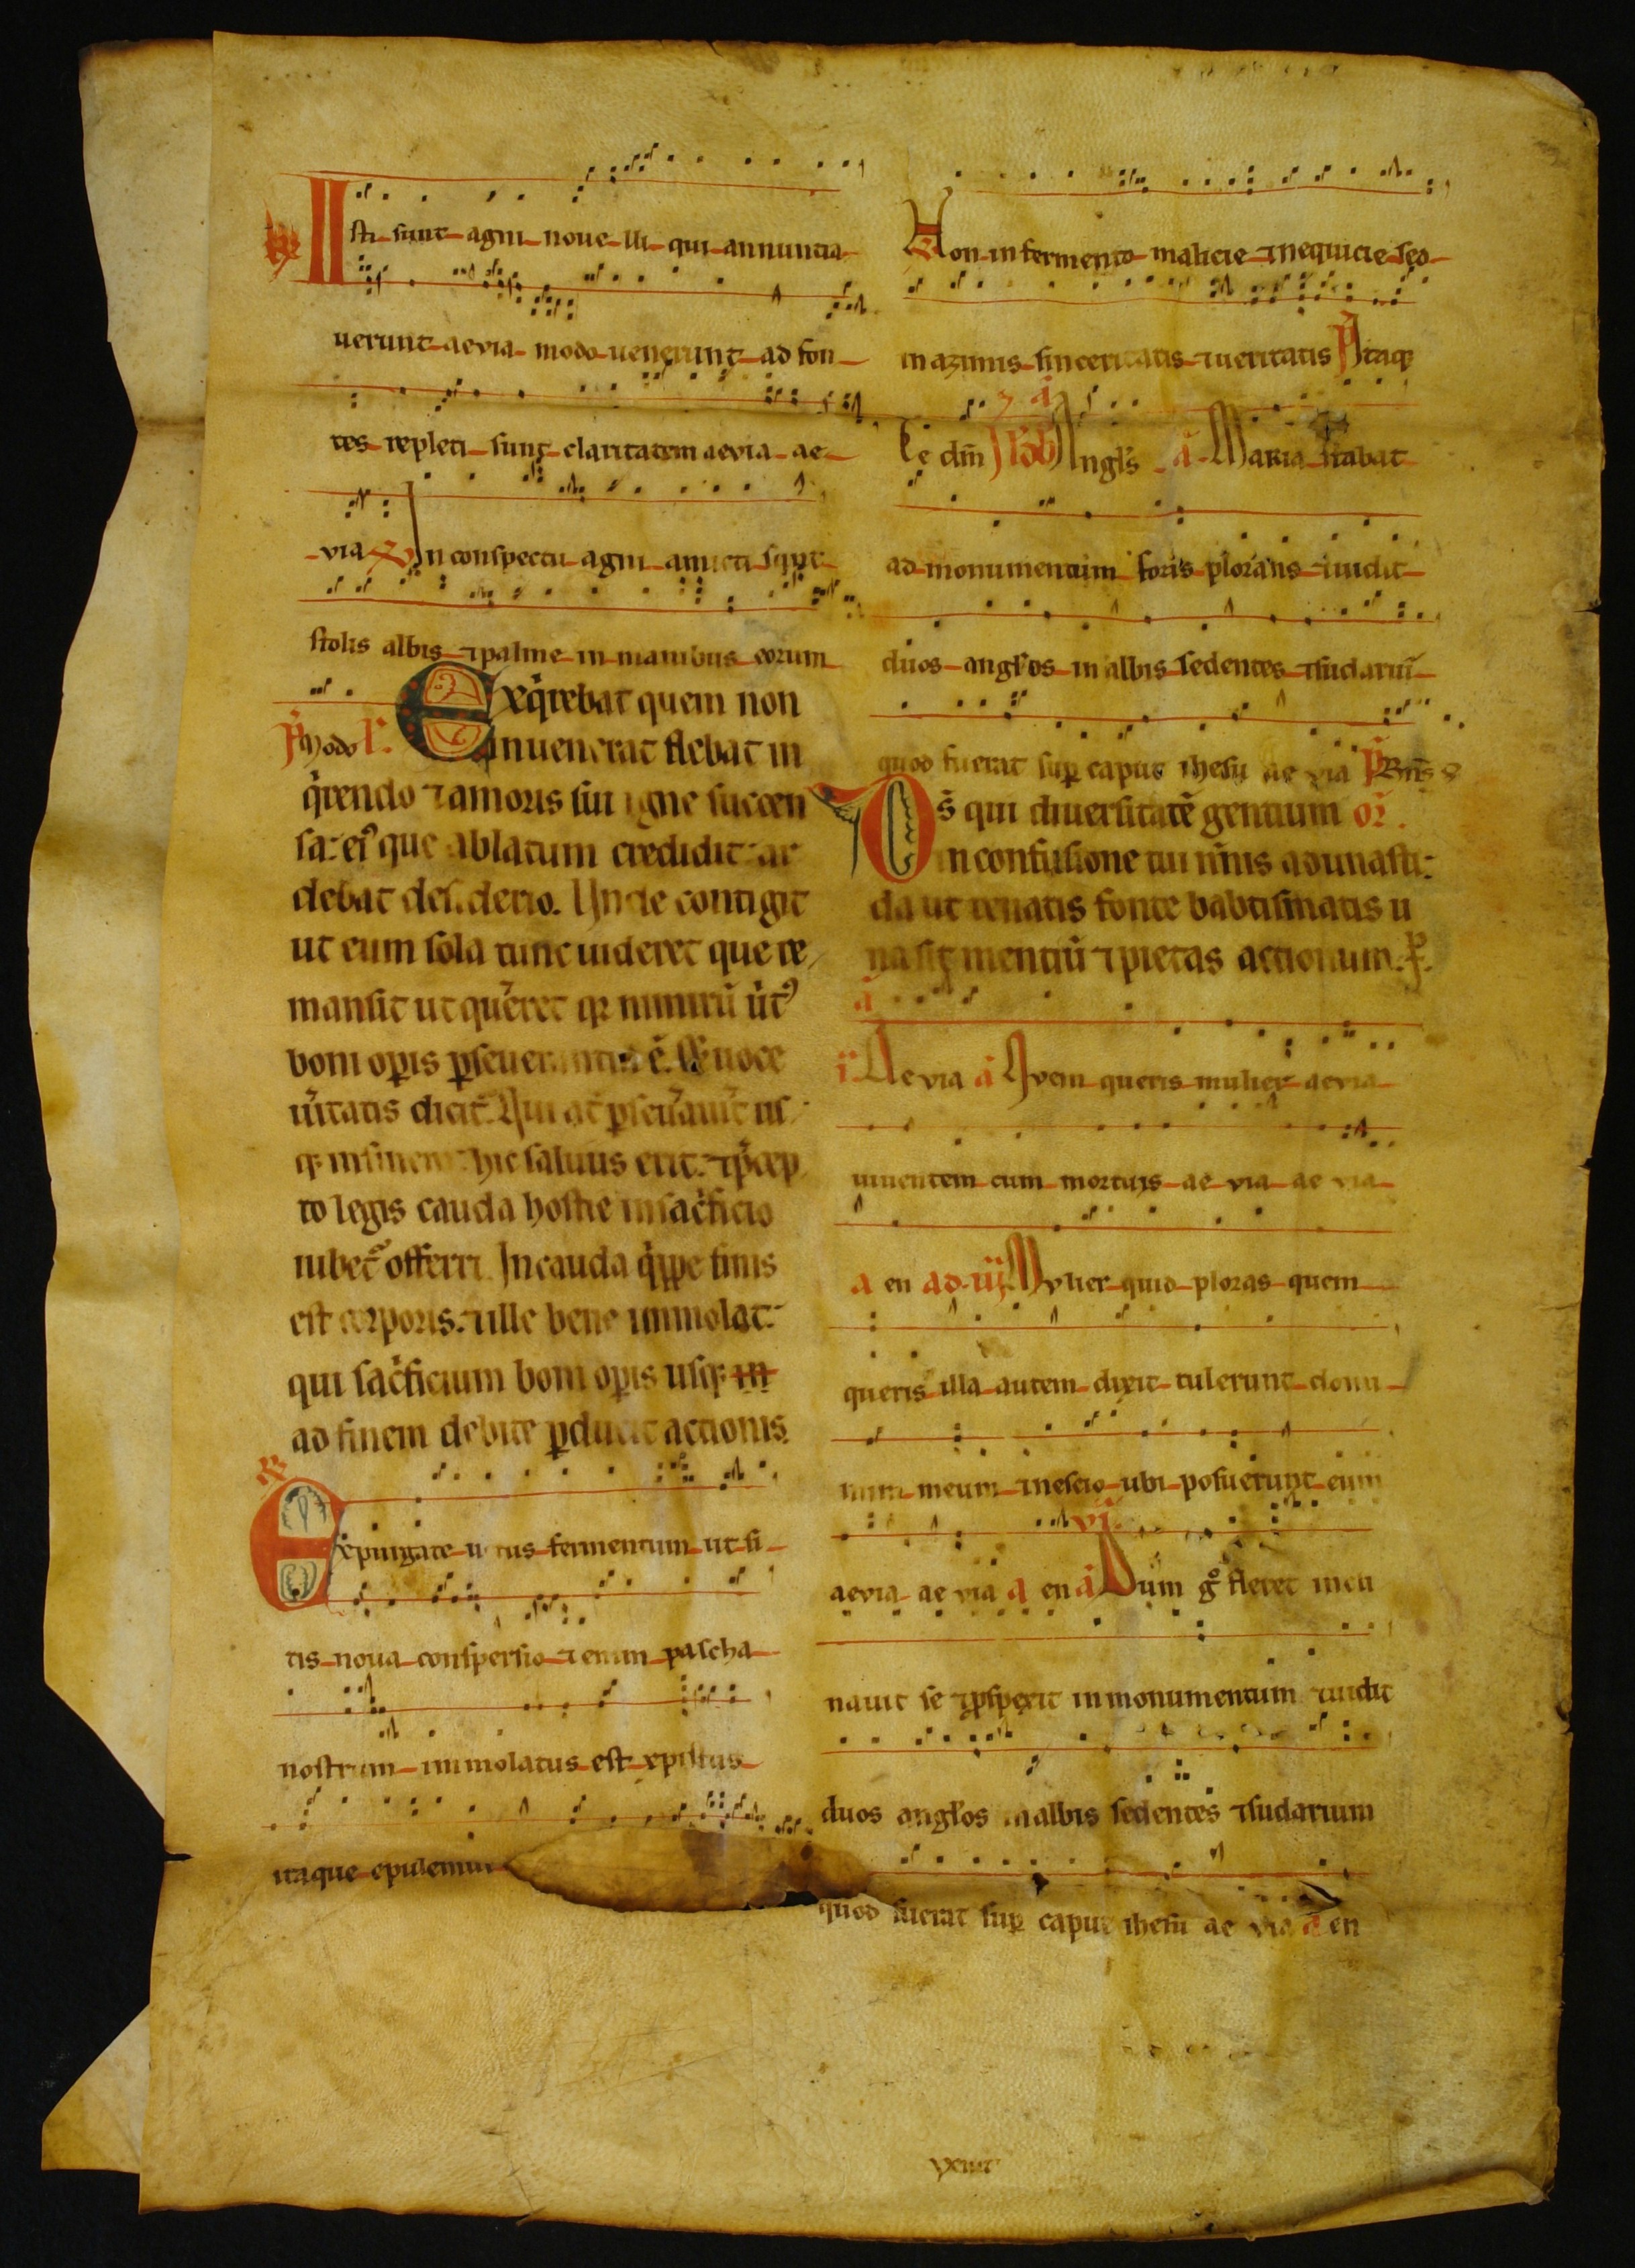 Isti sunt agni noue lli qui annuntia
uerunt aevia modo uenerunt ad fon
tes repleti sunt claritatem aevia ae
via In conspectu agni amicti sunt
stolis albis ⁊ palme in manibus eorum
Exq̇rebat quem non
P̃ Modo
inuenerat flebat in
q̇rendo ⁊ amoris sui igne succen
sa: eiꝰ que ablatum credidit: ar
debat desiderio. Unde contigit
ut eum sola tunc uideret que re
mansit ut quereret qꝛ nimirũ uirtꝰ
boni oꝑis ꝑseuerantia ẽ. & uoce
ueritatis dicit̃. Qui at̃ ꝑseuerauit us
qꝫ in finem hic saluus erit. ⁊ p̃cep
to legis cauda hostie in sacfici̇o
iubet̃ offerri. In cauda q̇ppe finis
est corporis. ⁊ ille bene immolat:
qui sacficium boni oꝑis usqꝫ in
ad finem debite ꝑducit actionis.
Expurgate uetus fermentum ut si
tis noua conspersio ⁊ enim pascha
nostrum immolatus est xpistus
itaque epulemur
Non in fermento malicie ⁊ nequicie sed
in azimis sinceritatis ⁊ ueritatis P̃ Itaqꝫ
Te dm̃ Angl̃s a Maria stabat
ad monumentum foris plorans ⁊ uidit
duos angl̃os in albis sedentes ⁊ sudariũ
quod fuerat suꝑ caput ihesu ae via
Ds̃ qui diuersitatẽ gentium or̃.
in confusione tui nm̃nis adunasti:
da ut renatis fonte babtismatis u
na sit mentiũ ⁊ pietas actionum. P̃.
a
Ae via a Qvem queris mulier aevia
uiuentem cum mortuis ae via ae via
a en ad iii Mvlier quid ploras quem
queris illa autem dixit tulerunt domi
num meum ⁊ nescio ubi posuerunt eum
vi
aevia ae via a en a Dum g̊ fleret incli
nauit se ⁊ ꝓspexit in monumentum ⁊ uidit
duos angl̃os in albis sedentes ⁊ sudarium
quod fuerat suꝑ caput ihesu ae via a en